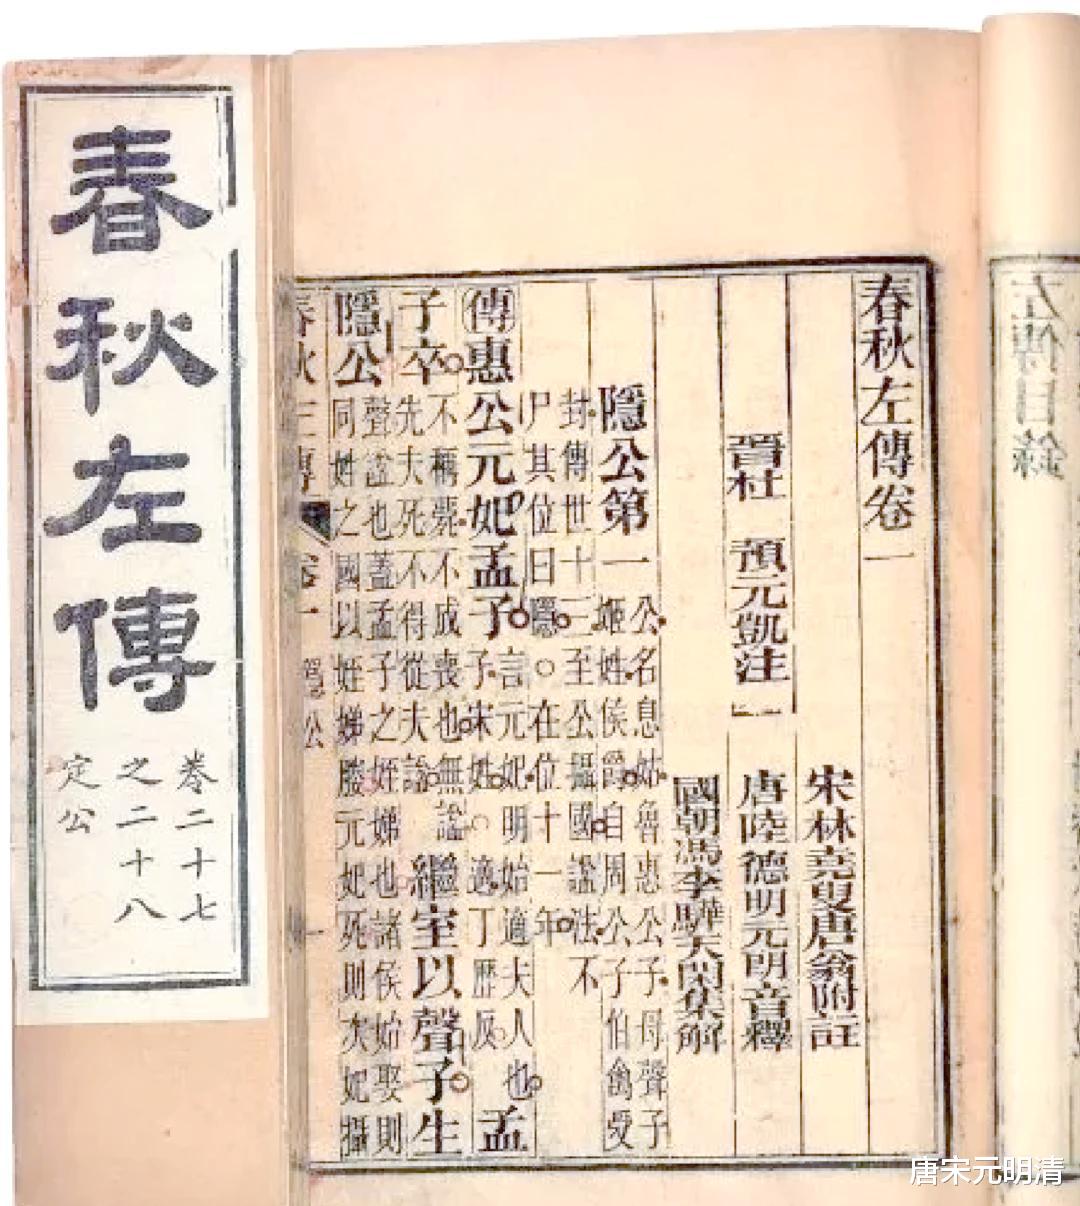 春秋左傳
卷二十七
之二十八
定公
春秋左傳卷一
宋林堯叟唐翁附註
晉杜 預元凱注 唐陸德明元朗音釋
國朝馮李驊天閑集解
隱公第一 公名息姑魯惠公子母聲子
姬姓侯爵自周公子伯禽受
封傳世十三至公攝國謚法不
尸其位曰隱○在位十一年
傳惠公元妃孟子 言元妃明始適夫人也
子宋姓○適丁歷反 孟
子卒 不稱薨不成喪也無謚
先夫死不得從夫謚 繼室以聲子生
隱公 聲謚也蓋孟子之姪娣也諸侯始娶則
同姓之國以姪娣媵元妃死則次妃攝
春秋左傳 卷一 隱公 一
左傳目錄
唐宋元明清